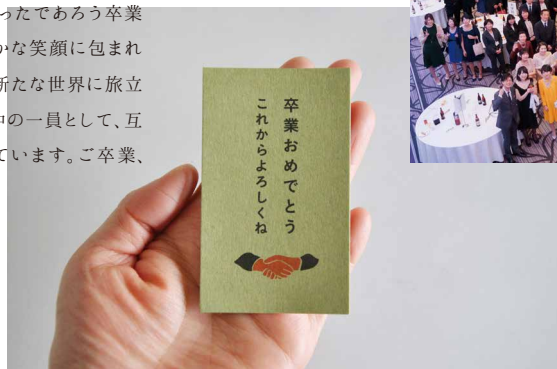 ったであろう卒業
かな笑顔に包まれ
新たな世界に旅立
中の一員として、互
ています。ご卒業、
卒業おめでとう
これからよろしくね